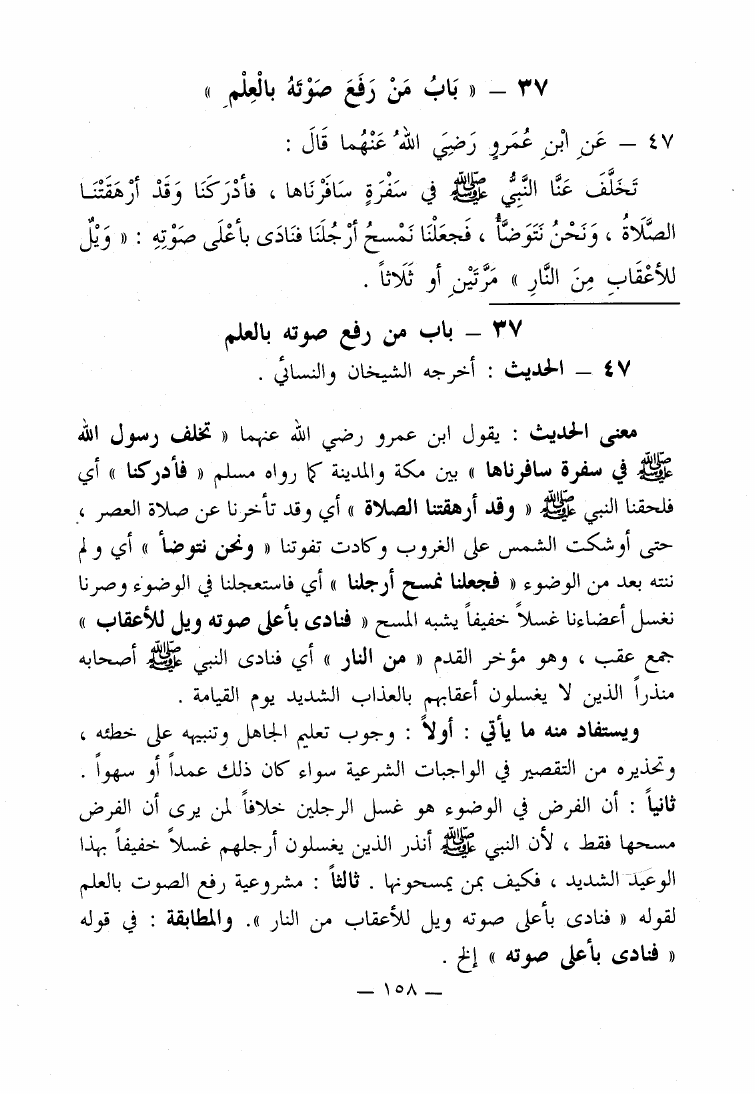 ٣٧ – « بَابُ مَنْ رَفَعَ صَوْتَهُ بالْعِلْمِ »
٤٧ – عَنِ ابْنِ عُمَرو رَضِيَ اللهُ عَنْهُما قَالَ :
تَخَلَّفَ عَنَّا النَّبِيُّ ﷺ في سَفْرَةٍ سَافَرْنَاها ، فأدْرَكَنَا وَقَدْ أرْهَقَتْنَا
الصَّلَاةُ ، وَنَحْنُ نَتَوَضَّأُ ، فَجعَلْنَا نَمْسحُ أرْجُلَنَا فنَادَى بأعْلَى صَوْتِهِ : « وَيْلٌ
للأعْقَابِ مِنَ النَّارِ » مَرَّتَيْنِ أو ثَلَاثاً .
٣٧ – باب من رفع صوته بالعلم
٤٧ – الحديث : أخرجه الشيخان والنسائي .
معنى الحديث : يقول ابن عمرو رضي الله عنهما « تخلف رسول الله
ﷺ في سفرة سافرناها » بين مكة والمدينة كما رواه مسلم « فأدركنا » أي
فلحقنا النبي ﷺ « وقد أرهقتنا الصلاة » أي وقد تأخرنا عن صلاة العصر ،
حتى أوشكت الشمس على الغروب وكادت تفوتنا « ونحن نتوضأ » أي ولم
ننته بعد من الوضوء « فجعلنا نمسح أرجلنا » أي فاستعجلنا في الوضوء وصرنا
نغسل أعضاءنا غسلاً خفيفاً يشبه المسح « فنادى بأعلى صوته ويل للأعقاب »
جمع عقب ، وهو مؤخر القدم « من النار » أي فنادى النبي ﷺ أصحابه
منذراً الذين لا يغسلون أعقابهم بالعذاب الشديد يوم القيامة .
ويستفاد منه ما يأتي : أولاً : وجوب تعليم الجاهل وتنبيهه على خطئه ،
وتحذيره من التقصير في الواجبات الشرعية سواء كان ذلك عمداً أو سهواً .
ثانياً : أن الفرض في الوضوء هو غسل الرجلين خلافاً لمن يرى أن الفرض
مسحها فقط ، لأن النبي ﷺ أنذر الذين يغسلون أرجلهم غسلاً خفيفاً بهذا
الوعيد الشديد ، فكيف بمن يمسحونها . ثالثاً : مشروعية رفع الصوت بالعلم
لقوله « فنادى بأعلى صوته ويل للأعقاب من النار ». والمطابقة : في قوله
« فنادى بأعلى صوته » إلخ .
– ١٥٨ –